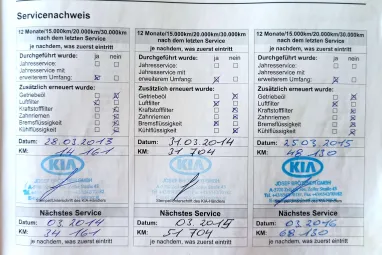 Servicenachweis
12 Monate/15.000km/20.000km/30.000km
nach dem letzten Service
je nachdem, was zuerst eintrifft
Durchgeführt wurde: ja nein
Jahresservice:
Jahresservice mit
erweitertem Umfang:
Zusätzlich erneuert wurde:
Getriebeöl
Luftfilter
Kraftstofffilter
Zahnriemen
Bremsflüssigkeit
Kühlflüssigkeit
Datum: 28.03.2013
KM: 14 161
KIA
Stempel/Unterschrift des KIA-Händlers
Nächstes Service
03.2014
34 161
je nachdem, was zuerst eintrifft
12 Monate/15.000km/20.000km/30.000km
nach dem letzten Service
je nachdem, was zuerst eintrifft
Durchgeführt wurde: ja nein
Jahresservice:
Jahresservice mit
erweitertem Umfang:
Zusätzlich erneuert wurde:
Getriebeöl
Luftfilter
Kraftstofffilter
Zahnriemen
Bremsflüssigkeit
Kühlflüssigkeit
Datum: 31.03.2014
KM: 31 704
KIA
Stempel/Unterschrift des KIA-Händlers
Nächstes Service
Datum: 03.2015
KM: 51 704
je nachdem, was zuerst eintrifft
12 Monate/15.000km/20.000km/30.000km
nach dem letzten Service
je nachdem, was zuerst eintrifft
Durchgeführt wurde: ja nein
Jahresservice:
Jahresservice mit
erweitertem Umfang:
Zusätzlich erneuert wurde:
Getriebeöl
Luftfilter
Kraftstofffilter
Zahnriemen
Bremsflüssigkeit
Kühlflüssigkeit
Datum: 25.03.2015
KM: 48 130
KIA
Stempel/Unterschrift des KIA-Händlers
Nächstes Service
Datum: 03.2016
KM: 68 130
je nachdem, was zuerst eintrifft